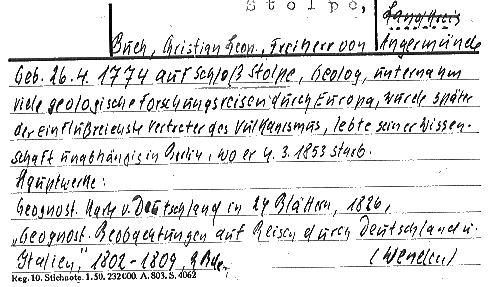 Stolpe,
Landkreis
Buch, Christian Leop., Freiherr von Angermünde
Geb. 26.4. 1774 auf Schloß Stolpe, Geolog, unternahm
viele geologische Forschungsreisen durch Europa, wurde später
der einflußreichste Vertreter des Vulkanismus, lebte seiner Wissen-
schaft unabhängig in Berlin, wo er 4.3.1853 starb.
Hauptwerke:
Geognost. Karte v. Deutschland in 24 Blättern, 1826,
„Geognost. Beobachtungen auf Reisen durch Deutschland u.
Italien," 1802-1809, 2 Bde.
Reg. 10. Stichnote. 1. 50. 232000. A. 803. S. 4062